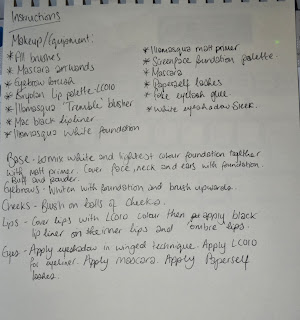 Instructions
Makeup/Equipment:
* All brushes
* Mascara
* Eyebrow brush
* Kryolan lip palette - LC010
* Illamasqua 'Tremble' blusher
* Mac black lipliner
* Illamasqua White foundation
* Illamasqua matt primer
* Screenface foundation palette.
* Mascara
* Paperself lashes
* eyelash glue
* White eyeshadow Sleek.
Base - mix white and lightest colour foundation together
with matt primer. Cover face, neck and ears with foundation.
Buff and powder.
Eyebrows - Whiten with foundation and brush upwards.
Cheeks - Blush on balls of cheeks.
Lips - Cover lips with LC010 colour then apply black
lip liner on the inner lips and "ombre" lips.
Eyes - Apply eyeshadow in winged technique. Apply LC010
for eyeliner. Apply mascara. Apply Paperself
lashes.